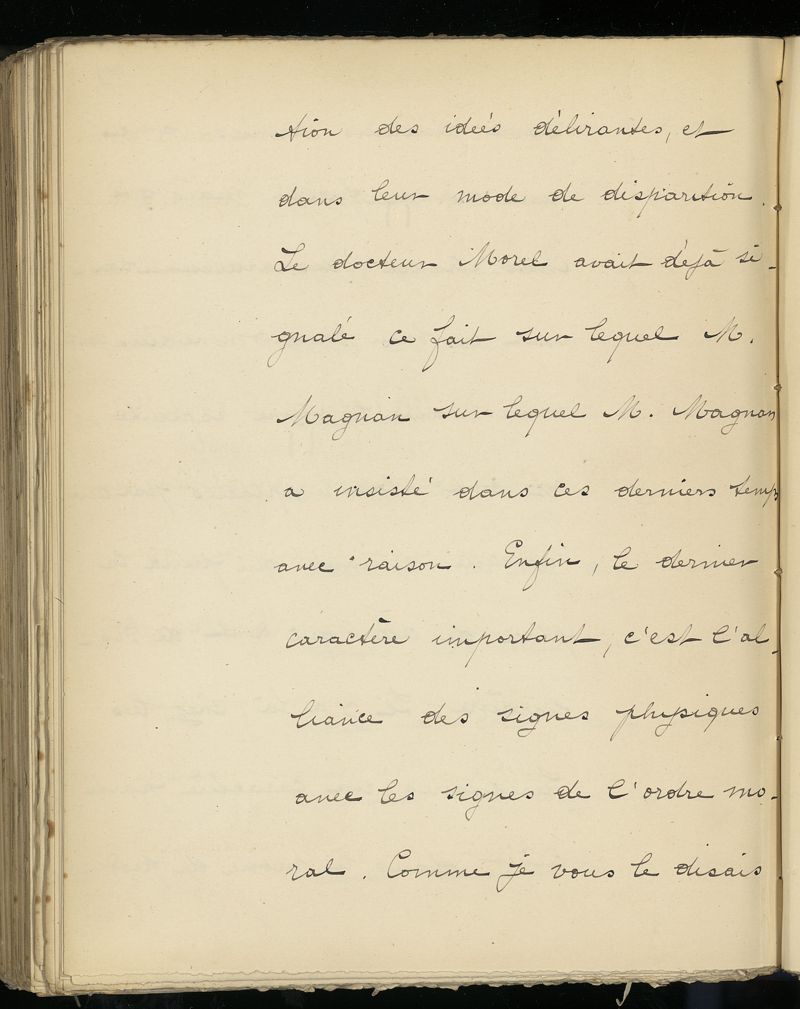 tion des idées délirantes, et
dans leur mode de disparition.
Le docteur Morel avait déjà si-
gnalé ce fait sur lequel M.
Magnan sur lequel M. Magnan
a insisté dans ces derniers temps
avec raison. Enfin, le dernier
caractère important, c'est l'al-
liance des signes physiques
avec les signes de l'ordre mo-
ral. Comme je vous le disais